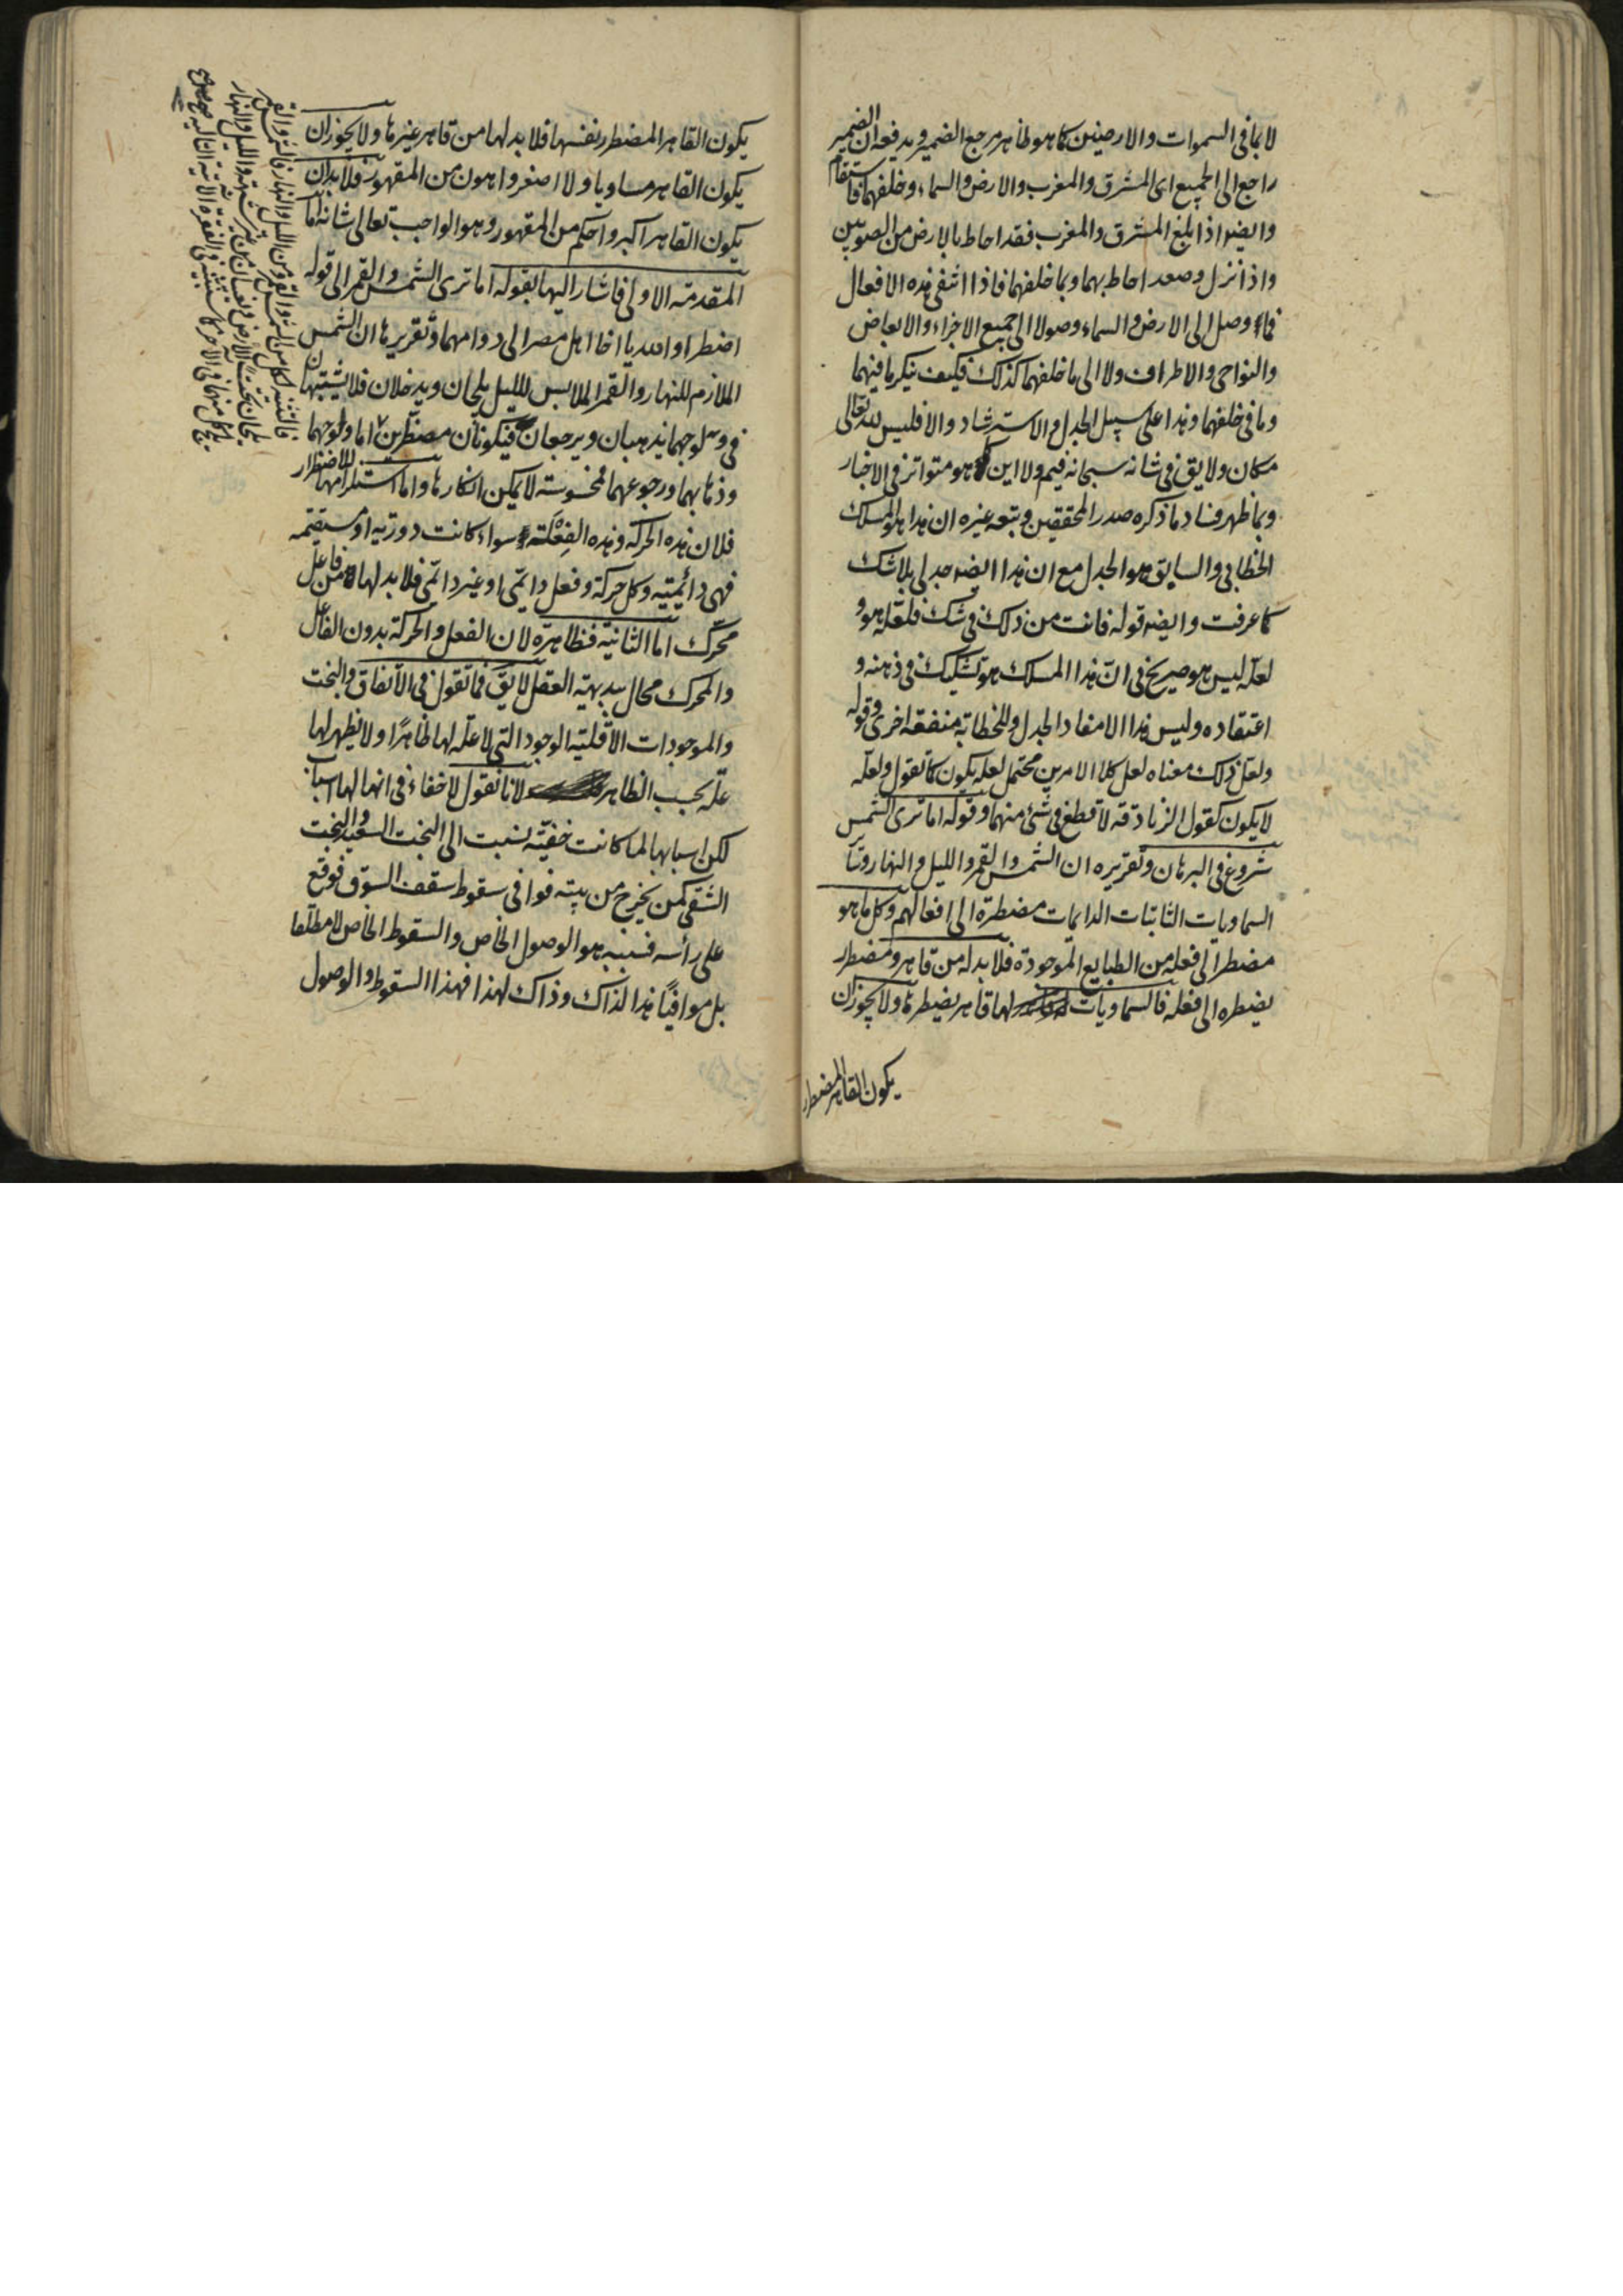 لا بما فى السموات والارضين كما هو ظاهر مرجع الضمير ويدفعه ان الضمير
راجع الى الجميع اى المشرق والمغرب والارض والسماء وخلفهما فاستقام
وايضه اذا بلغ المشرق والمغرب فقد احاط بالارض من الصوبين
واذا نزل وصعد احاط بهما وبما خلفهما فاذا انتفى هذه الافعال
فما وصل الى الارض والسماء وصولا الى جميع الاجزاء والابعاض
والنواحى والاطراف ولا الى ما خلفهما كذلك فكيف ينكر ما فيهما
وما فى خلفهما وهذا على سبيل الجدل والاسترشاد والا فليس لله تعالى
مكان ولا يق فى شانه سبحانه فيم ولا اين كما هو متواتر فى الاخبار
وبما ظهر فساد ما ذكره صدر المحققين وتبعه غيره ان هذا هو المسلك
الخطابى والسابق هو الجدل مع ان هذا ايضه جدلى بلا شك
كما عرفت وايضه قوله فانت من ذلك فى شك فلعله هو و
لعله ليس هو صريح فى ان هذا المسلك هو تشكيك فى ذهنه و
اعتقاده وليس هذا الا مفاد الجدل وللخطابة منفعة اخرى وقوله
ولعل ذلك معناه لعل كلا الامرين محتمل لعله يكون كما تقول ولعله
لا يكون كقول الزنادقة لا قطع فى شئ منهما وقوله اما ترى الشمس
شروع فى البرهان وتقريره ان الشمس والقمر والليل والنهار وتا
السماويات الثابتات الدايمات مضطرة الى افعالهم وكل ما هو
مضطر الى فعله من الطبايع الموجودة فلا بد له من قاهر ومضطر
يضطره الى فعله فالسماويات لها قاهر يضطرها ولا يجوز ان
يكون القاهر المضطر
يكون القاهر المضطر نفسها فلا بد لها من قاهر غيرها ولا يجوز ان
يكون القاهر مساويا ولا اصغر واهون من المقهور فلا بد ان
يكون القاهر اكبر واحكم من المقهور وهو الواجب تعالى شانه اما
المقدمة الاولى فاشار اليها بقوله اما ترى الشمس والقمر الى قوله
اضطرا والله يا اخا اهل مصر الى دوامهما وتقريرها ان الشمس
الملازم للنهار والقمر الملابس لليل يلجان ويدخلان فلا يشتبهان
فى ولوجهما يذهبان ويرجعان فيكونان مضطرين اما ولوجهما
وذهابهما ورجوعهما فمحسوسة لا يمكن انكارها واما استلزامها للاضطرار
فلان هذه الحركة وهذه الفعلة سواء كانت دورية او مستقيمة
فهى دائمية وكل حركة وفعل دائمى او غير دائمى فلا بد لها من فاعل
محرك اما الثانية فظاهرة لان الفعل والحركة بدون الفاعل
والمحرك محال ببديهة العقل لا يق فما تقول فى الاتفاق والبخت
والموجودات الاقلية الوجود التى لا علة لها ظاهرا ولا يظهر لها
علة بحسب الظاهر لانا نقول لا خفاء فى انها لها اسباب
لكن اسبابها لما كانت خفية نسبت الى البخت السعيد والبخت
الشقى كمن يخرج من بيته فوافى سقوط سقف السوق فوقع
على رأسه فسببه هو الوصول الخاص والسقوط الخاص لا مطلقا
بل موافيا هذا لذاك وذاك لهذا فهذا السقوط والوصول